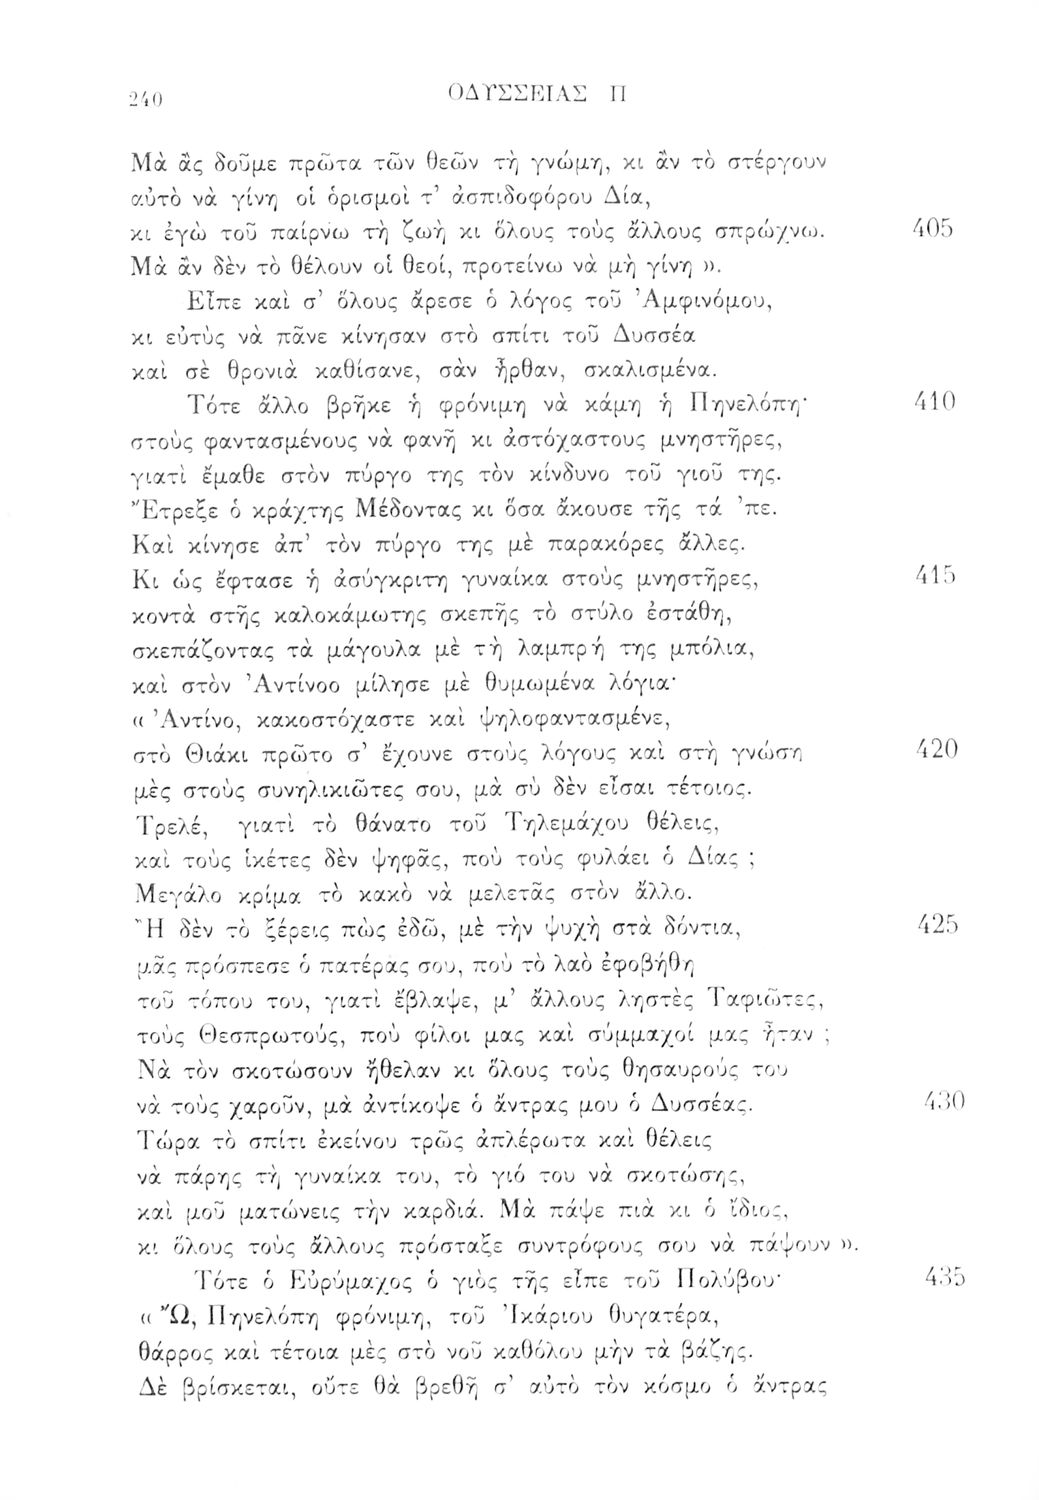 240
ΟΔΥΣΣΕΙΑΣ Π
Μὰ ἂς δοῦμε πρῶτα τῶν θεῶν τὴ γνώμη, κι ἂν τὸ στέργουν
αὐτὸ νὰ γίνη οἱ ὁρισμοὶ τ’ ἀσπιδοφόρου Δία,
κι ἐγὼ τοῦ παίρνω τὴ ζωὴ κι ὅλους τοὺς ἄλλους σπρώχνω. 405
Μὰ ἂν δὲν τὸ θέλουν οἱ θεοί, προτείνω νὰ μὴ γίνη ».
Εἶπε καὶ σ’ ὅλους ἄρεσε ὁ λόγος τοῦ Ἀμφινόμου,
κι εὐτὺς νὰ πᾶνε κίνησαν στὸ σπίτι τοῦ Δυσσέα
καὶ σὲ θρονιὰ καθίσανε, σὰν ἦρθαν, σκαλισμένα.
Τότε ἄλλο βρῆκε ἡ φρόνιμη νὰ κάμη ἡ Πηνελόπη· 410
στοὺς φαντασμένους νὰ φανῆ κι ἀστόχαστους μνηστῆρες,
γιατὶ ἔμαθε στὸν πύργο της τὸν κίνδυνο τοῦ γιοῦ της.
Ἔτρεξε ὁ κράχτης Μέδοντας κι ὅσα ἄκουσε τῆς τά ’πε.
Καὶ κίνησε ἀπ’ τὸν πύργο της μὲ παρακόρες ἄλλες.
Κι ὡς ἔφτασε ἡ ἀσύγκριτη γυναίκα στοὺς μνηστῆρες, 415
κοντὰ στῆς καλοκάμωτης σκεπῆς τὸ στύλο ἐστάθη,
σκεπάζοντας τὰ μάγουλα μὲ τὴ λαμπρή της μπόλια,
καὶ στὸν Ἀντίνοο μίλησε μὲ θυμωμένα λόγια·
« Ἀντίνο, κακοστόχαστε καὶ ψηλοφαντασμένε,
στὸ Θιάκι πρῶτο σ’ ἔχουνε στοὺς λόγους καὶ στὴ γνώση 420
μὲς στοὺς συνηλικιῶτες σου, μὰ σὺ δὲν εἶσαι τέτοιος.
Τρελέ, γιατὶ τὸ θάνατο τοῦ Τηλεμάχου θέλεις,
καὶ τοὺς ἱκέτες δὲν ψηφᾶς, ποὺ τοὺς φυλάει ὁ Δίας ;
Μεγάλο κρίμα τὸ κακὸ νὰ μελετᾶς στὸν ἄλλο.
Ἢ δὲν τὸ ξέρεις πὼς ἐδῶ, μὲ τὴν ψυχὴ στὰ δόντια, 425
μᾶς πρόσπεσε ὁ πατέρας σου, ποὺ τὸ λαὸ ἐφοβήθη
τοῦ τόπου του, γιατὶ ἔβλαψε, μ’ ἄλλους ληστὲς Ταφιῶτες,
τοὺς Θεσπρωτούς, ποὺ φίλοι μας καὶ σύμμαχοί μας ἦταν ;
Νὰ τὸν σκοτώσουν ἤθελαν κι ὅλους τοὺς θησαυρούς του
νὰ τοὺς χαροῦν, μὰ ἀντίκοψε ὁ ἄντρας μου ὁ Δυσσέας. 430
Τώρα τὸ σπίτι ἐκείνου τρῶς ἀπλέρωτα καὶ θέλεις
νὰ πάρης τὴ γυναίκα του, τὸ γιό του νὰ σκοτώσης,
καὶ μοῦ ματώνεις τὴν καρδιά. Μὰ πάψε πιὰ κι ὁ ἴδιος,
κι ὅλους τοὺς ἄλλους πρόσταξε συντρόφους σου νὰ πάψουν ».
Τότε ὁ Εὐρύμαχος ὁ γιὸς τῆς εἶπε τοῦ Πολύβου· 435
« Ὢ, Πηνελόπη φρόνιμη, τοῦ Ἰκάριου θυγατέρα,
θάρρος καὶ τέτοια μὲς στὸ νοῦ καθόλου μὴν τὰ βάζης.
Δὲ βρίσκεται, οὔτε θὰ βρεθῆ σ’ αὐτὸ τὸν κόσμο ὁ ἄντρας